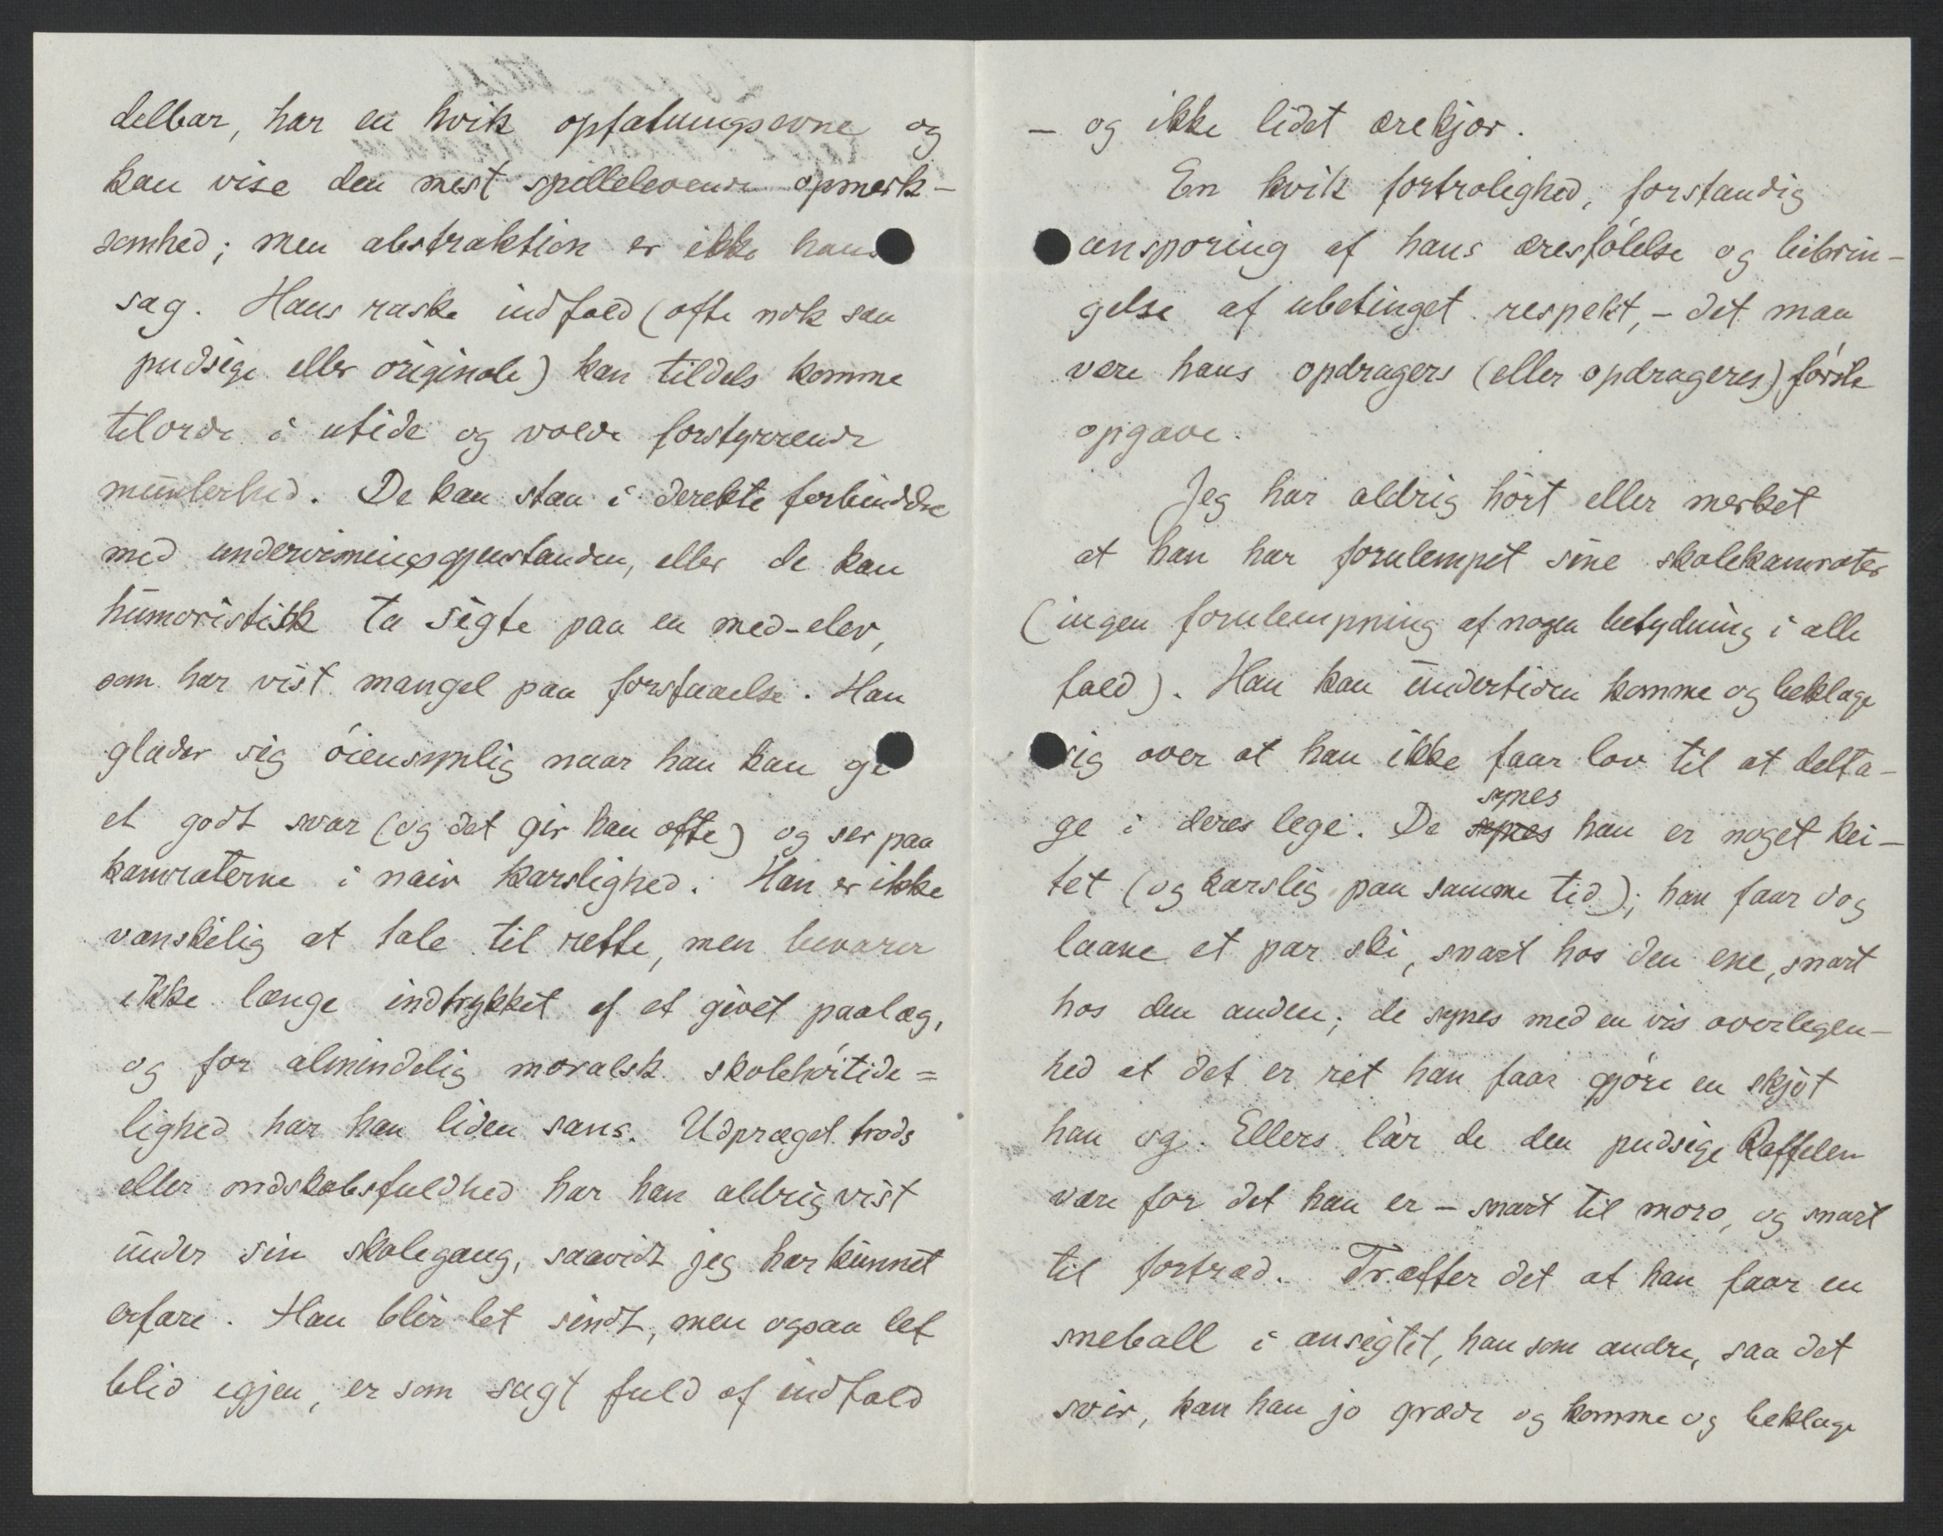 delbar, har en kvik opfatningsevne og
kan vise den mest spillelevende opmerk-
somhed; men abstraktion er ikke hans
sag. Hans raske indfald (ofte nok saa
pudsige eller originale) kan tildels komme
tilorde i utide og volde forstyrrende
munterhed. De kan staa i derekte forbindelse
med undervisningsgjenstanden, eller de kan
humoristisk ta sigte paa en med-elev,
som har vist mangel paa forstaaelse. Han
glæder sig óiensynlig naar han kan gi
et godt svar (og det gir han ofte) og ser paa
kamraterne i naiv karslighed. Han er ikke
vanskelig at tale til rette, men bevarer
ikke længe indtrykket af et givet paalæg,
og for almindelig moralsk skolehóitide=
lighed har han liden sans. Udpræget trods
eller ondskabsfuldhed har han aldrig vist
under sin skolegang, saavidt jeg har kunnet
erfare. Han blir let sindt, men ogsaa let
blid igjen, er som sagt fuld af indfald
– og ikke lidet ærekjær.
En kvik fortrolighed, forstandig
ansporing af hans æresfólelse og bibrin-
gelse af ubetinget respekt, – det maa
være hans opdragers (eller opdrageres) fórste
opgave.
Jeg har aldrig hórt eller merket
at han har forulempet sine skolekamrater
(ingen forulempning af nogen betydning i alle
fald). Han kan undertiden komme og beklage
sig over at han ikke faar lov til at delta-
synes
ge i deres lege. De synes han er noget kei-
tet (og karslig paa samme tid); han faar dog
laane et par ski, snart hos den ene, snart
hos den anden; de synes med en vis overlegen-
hed at det er ret han faar gjóre en skjót
han og. Ellers lar de den pudsige Raffelen
være for det han er – snart til moro, og snart
til fortræd. Træffer det at han faar en
sneball i ansigtet, han som andre, saa det
svir, kan han jo græde og komme og beklage